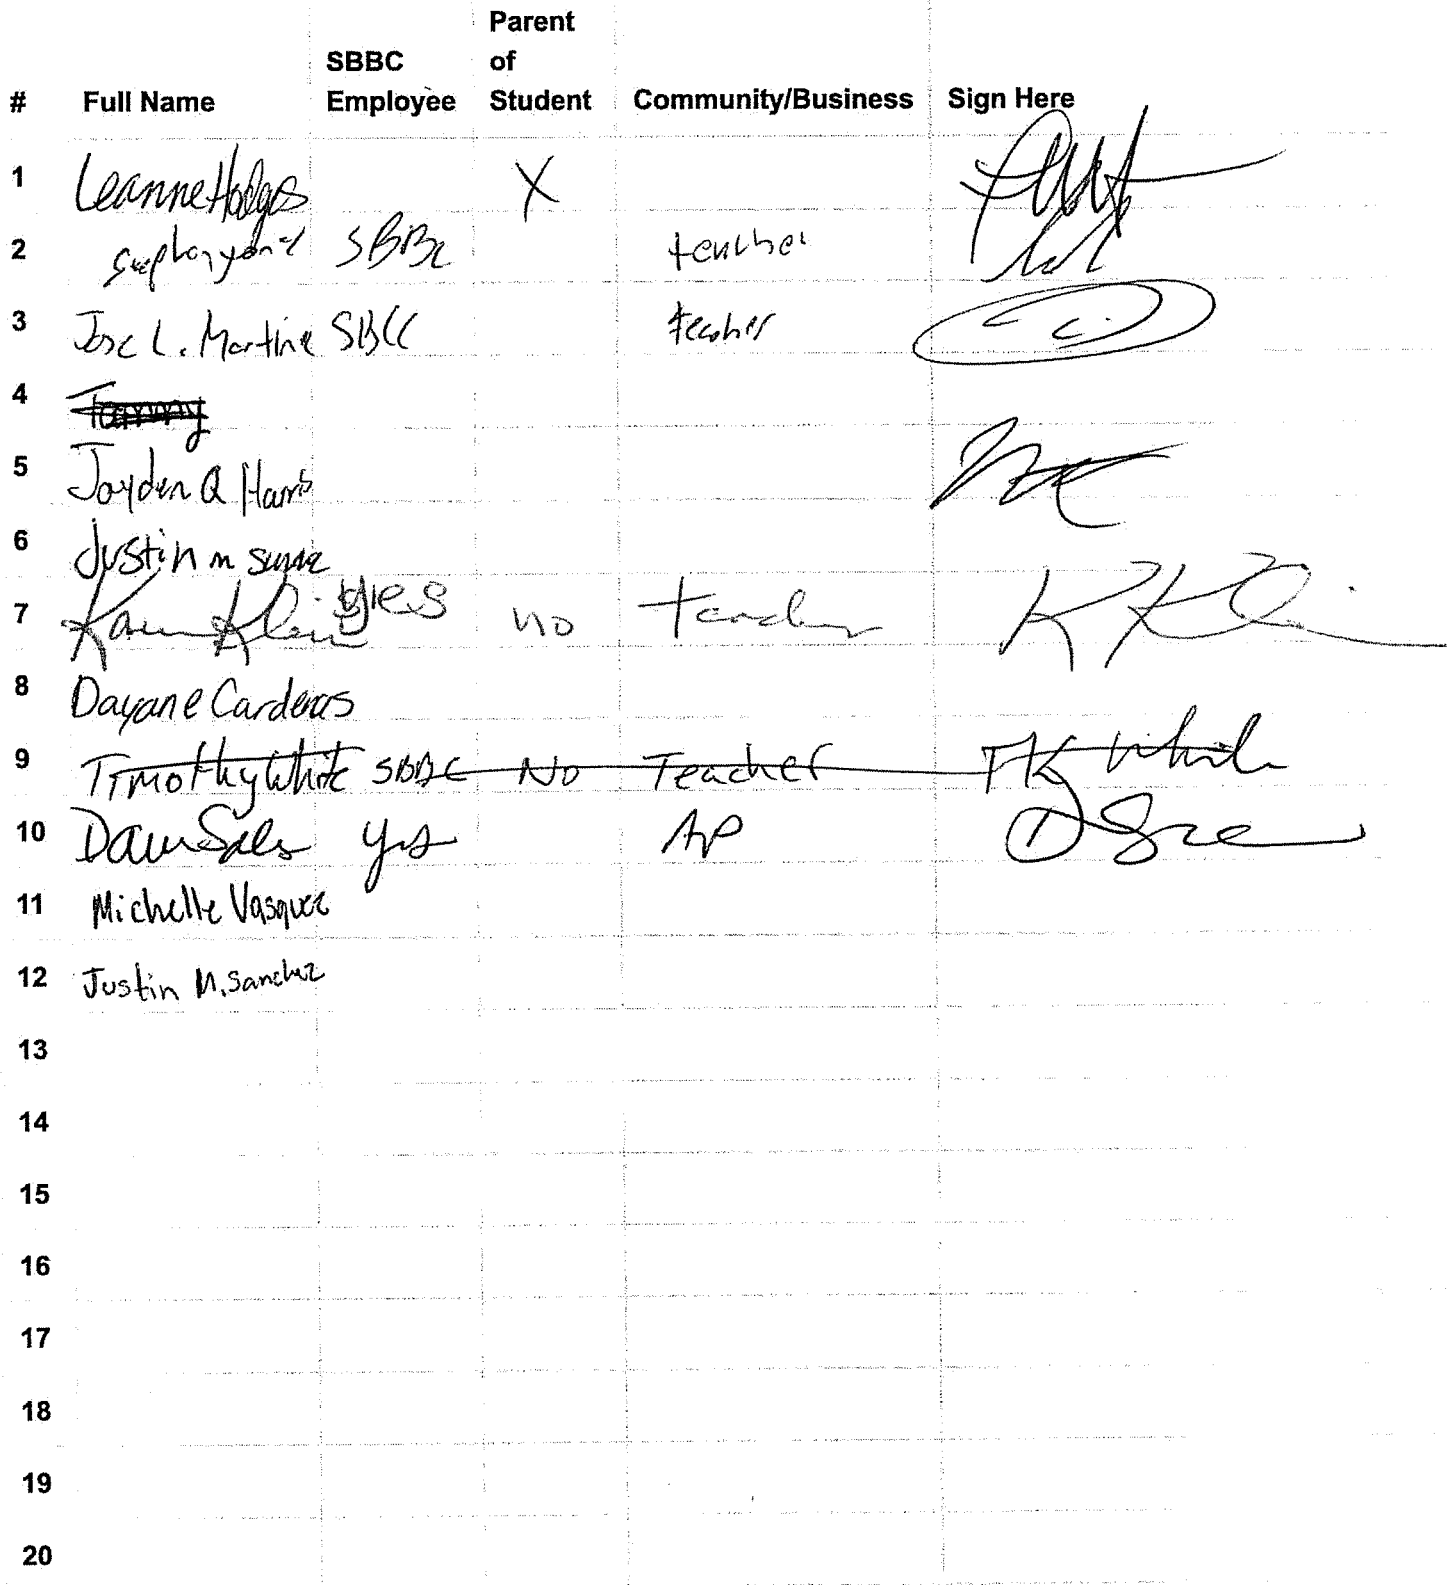 Parent
SBBC of
# Full Name Employee Student Community/Business Sign Here
1 Leanne Hodges X
2 SBBC teacher
3 Jose L. Martine SBCC teacher
4 Tammy
5 Jayden Q Harris
6 Justin m
7 Karen Klein yes no teacher K Klein
8 Dayane Cardenas
9 Timothy White SBBC No Teacher TK White
10 yes AP
11 Michelle Vasquez
12 Justin M. Sanchez
13
14
15
16
17
18
19
20